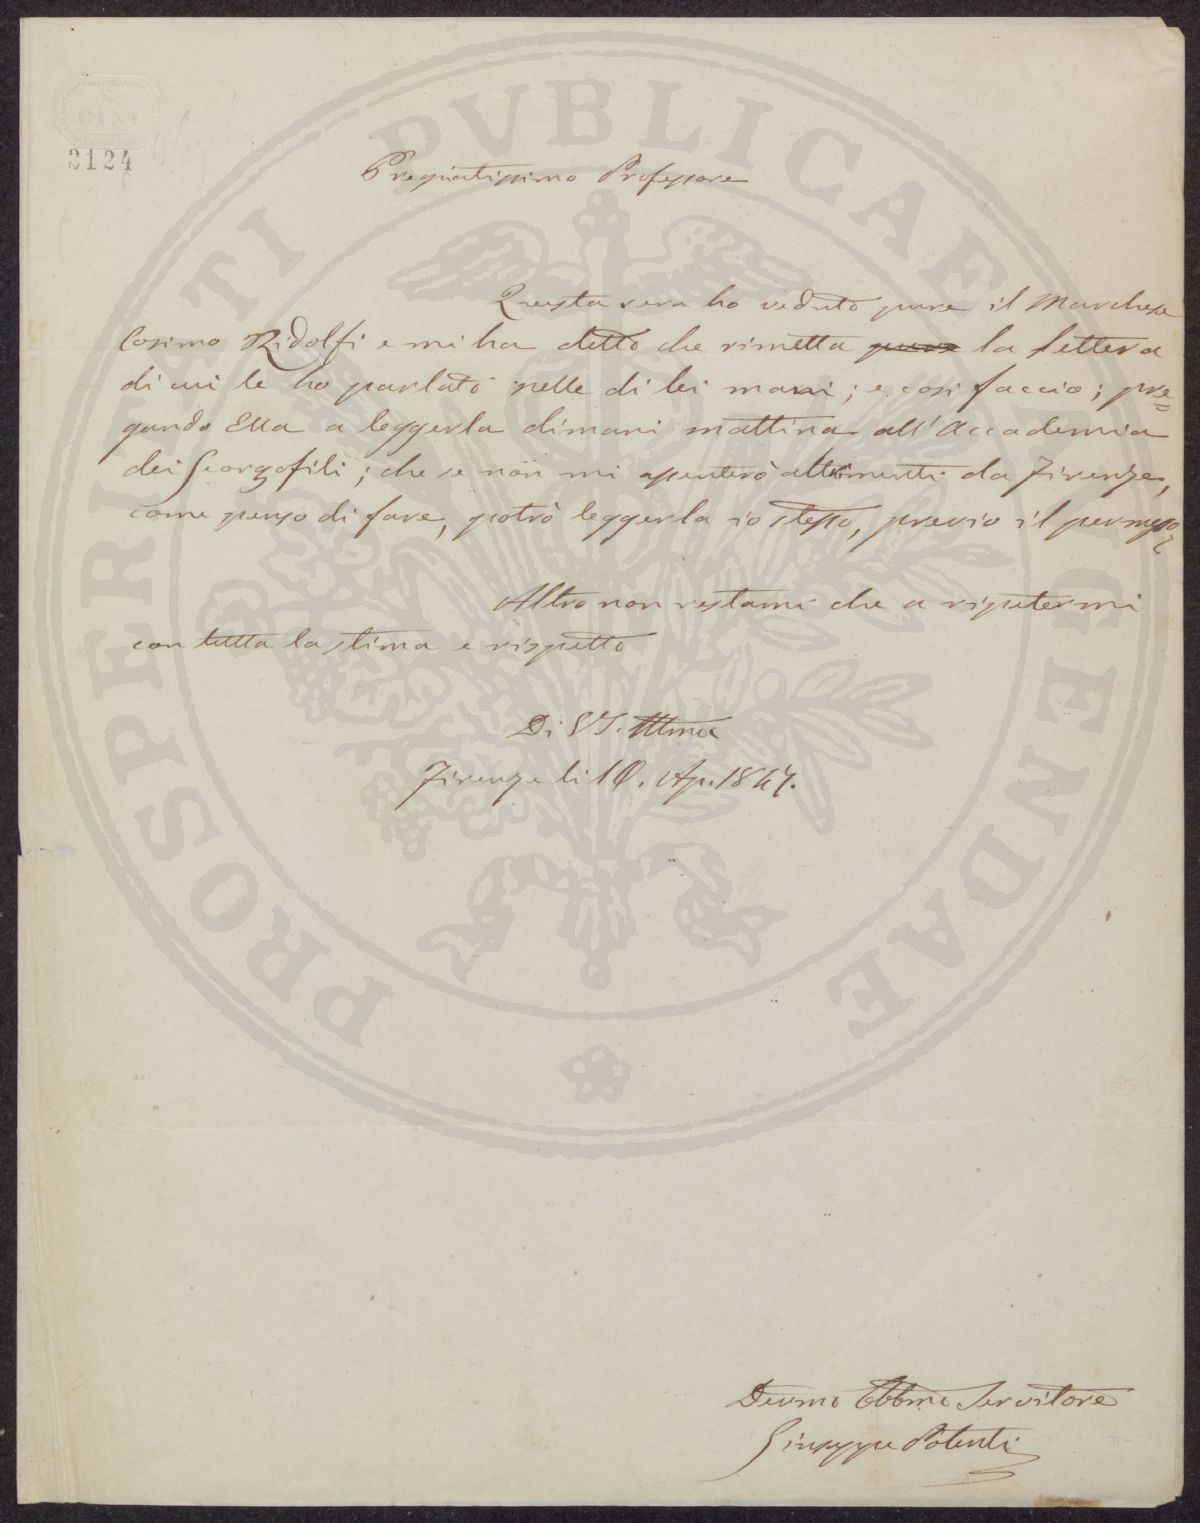 PROSPERITATI PVBLICAE AVGENDAE
CINI
2124
Pregiatissimo Professore
Questa sera ho veduto pure il Marchese
Cosimo Ridolfi e mi ha detto che rimetta pure la lettera
di cui le ho parlato nelle di lei mani; e così faccio; pre=
gando Ella a leggerla dimani mattina all'Accademia
dei Georgofili; che se non mi assenterò altrimenti da Firenze,
come penso di fare, potrò leggerla io stesso, previo il permesso
Altro non restami che a ripetermi
con tutta la stima e rispetto
Di VS. Illma
Firenze li 10. Ap. 1847.
Devmo Obbmo Servitore
Giuseppe Potenti